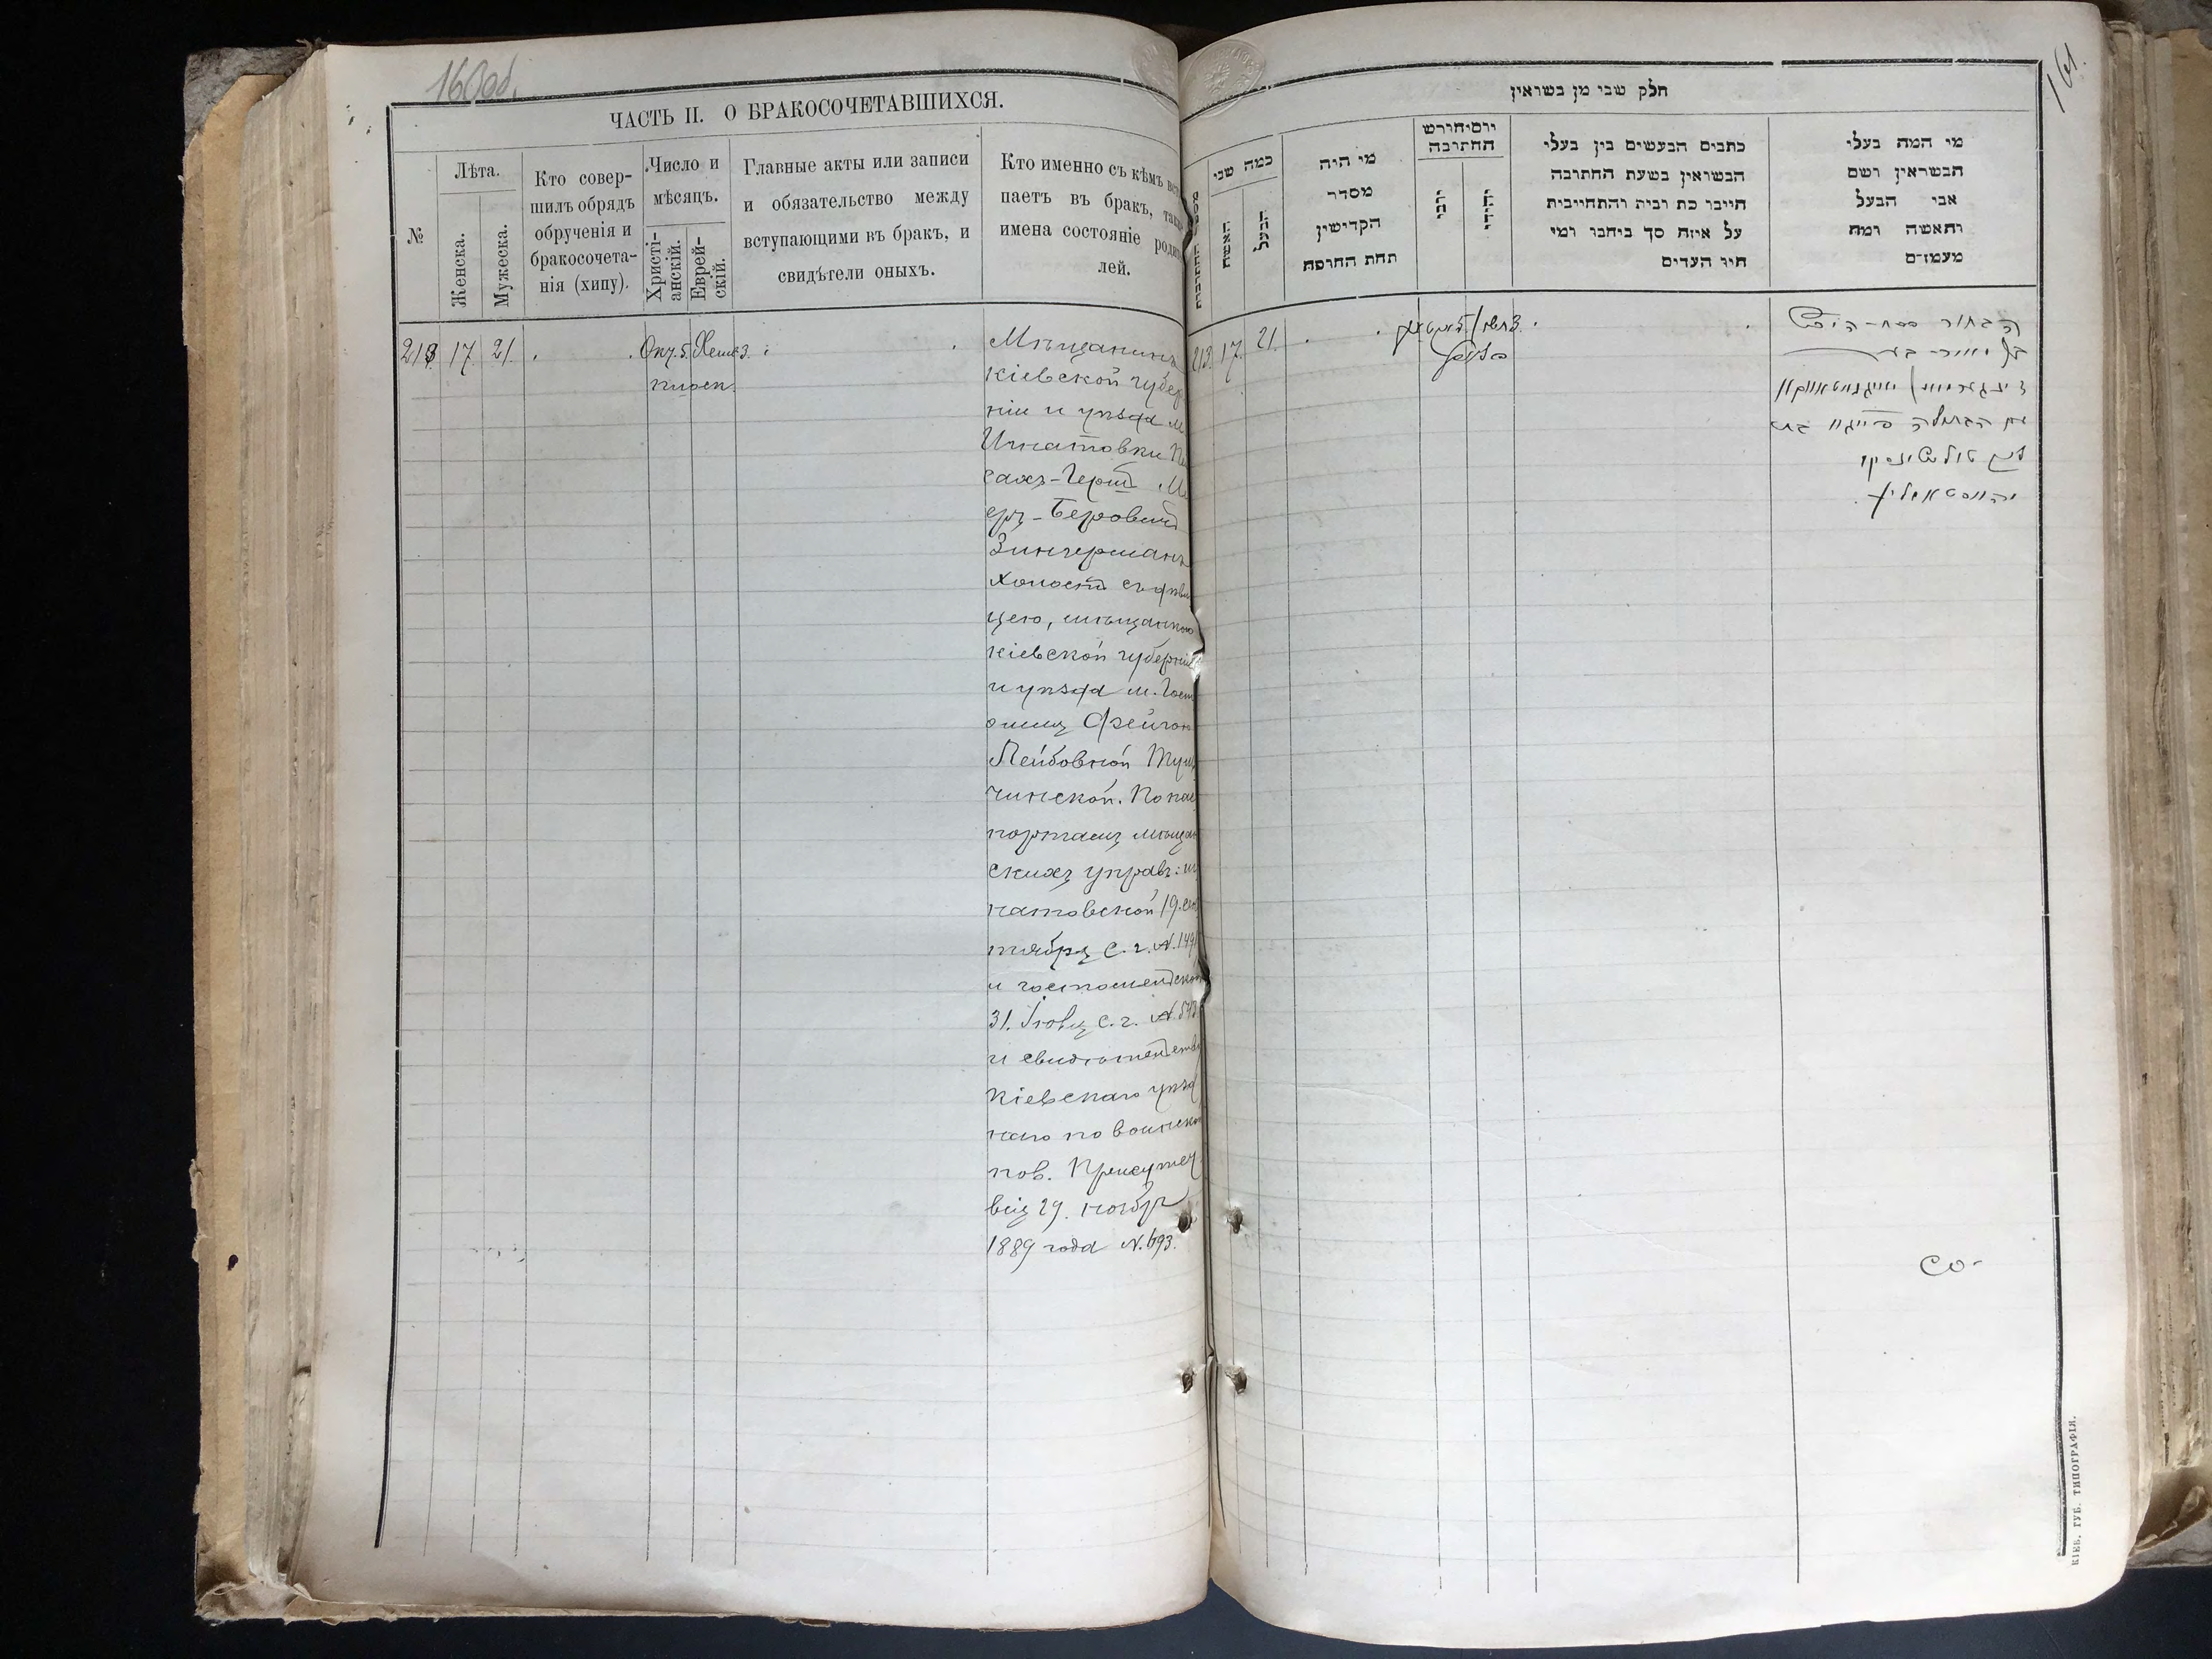 160об.
ЧАСТЬ II. О БРАКОСОЧЕТАВШИХСЯ.
№
Лѣта.
Женска.
Мужеска.
Кто совер-
шилъ обрядъ
обрученія и
бракосочета-
нія (хипу).
Число и
мѣсяцъ.
Христі-
анскій.
Еврей-
скій.
Главные акты или записи
и обязательство между
вступающими въ бракъ, и
свидѣтели оныхъ.
Кто именно съ кѣмъ всту
паетъ въ бракъ, также
имена состояніе родите
лей.
213. 17. 21. Окт. 5. Хешв 3.
Мѣщанинъ
Кіевской губер
ніи и уѣзда м
Игнатовки Пе
сахъ-Герш Ме
еръ-Беровичъ
Зингерманъ
холостъ съ дѣви
цею, мѣщанкою
Кіевской губерніи
и уѣзда м. Гост
омиля Фейгою
Лейбовной Туль
чинской. По пас
портамъ мѣщан
скихъ управъ: иг
натовской 19. сен
тября с. г. N. 149
и гостомельской
31. Іюля с. г. N. 573
и свидѣтельства
Кіевскаго уѣзд
наго по воинской
пов. Присутст
вія 29. ноября
1889 года N. 693.
161.
חלק שני מן נשואין
מספר החתונות
כמה שני
האשה
הבעל
מי היה
מסדר
הקדישין
תחת החופה
יום וחודש
החתונה
רוסי
יהודי
כתבים הנעשים בין בעלי
הנשואין בשעת החתונה
חייבו כת רבית והתחייבות
על איזה סך ביחבו ומי
היו העדים
מי המה בעלי
הנשואין ושם
אבי הבעל
והאשה ומה
מעמדם
213. 17. 21.
הבחור פסח-הירש
זינגערמאן
עם הבתולה פייגא בת
טולטשינסקי
Со-
КІЕВ. ГУБ. ТИПОГРАФІЯ.